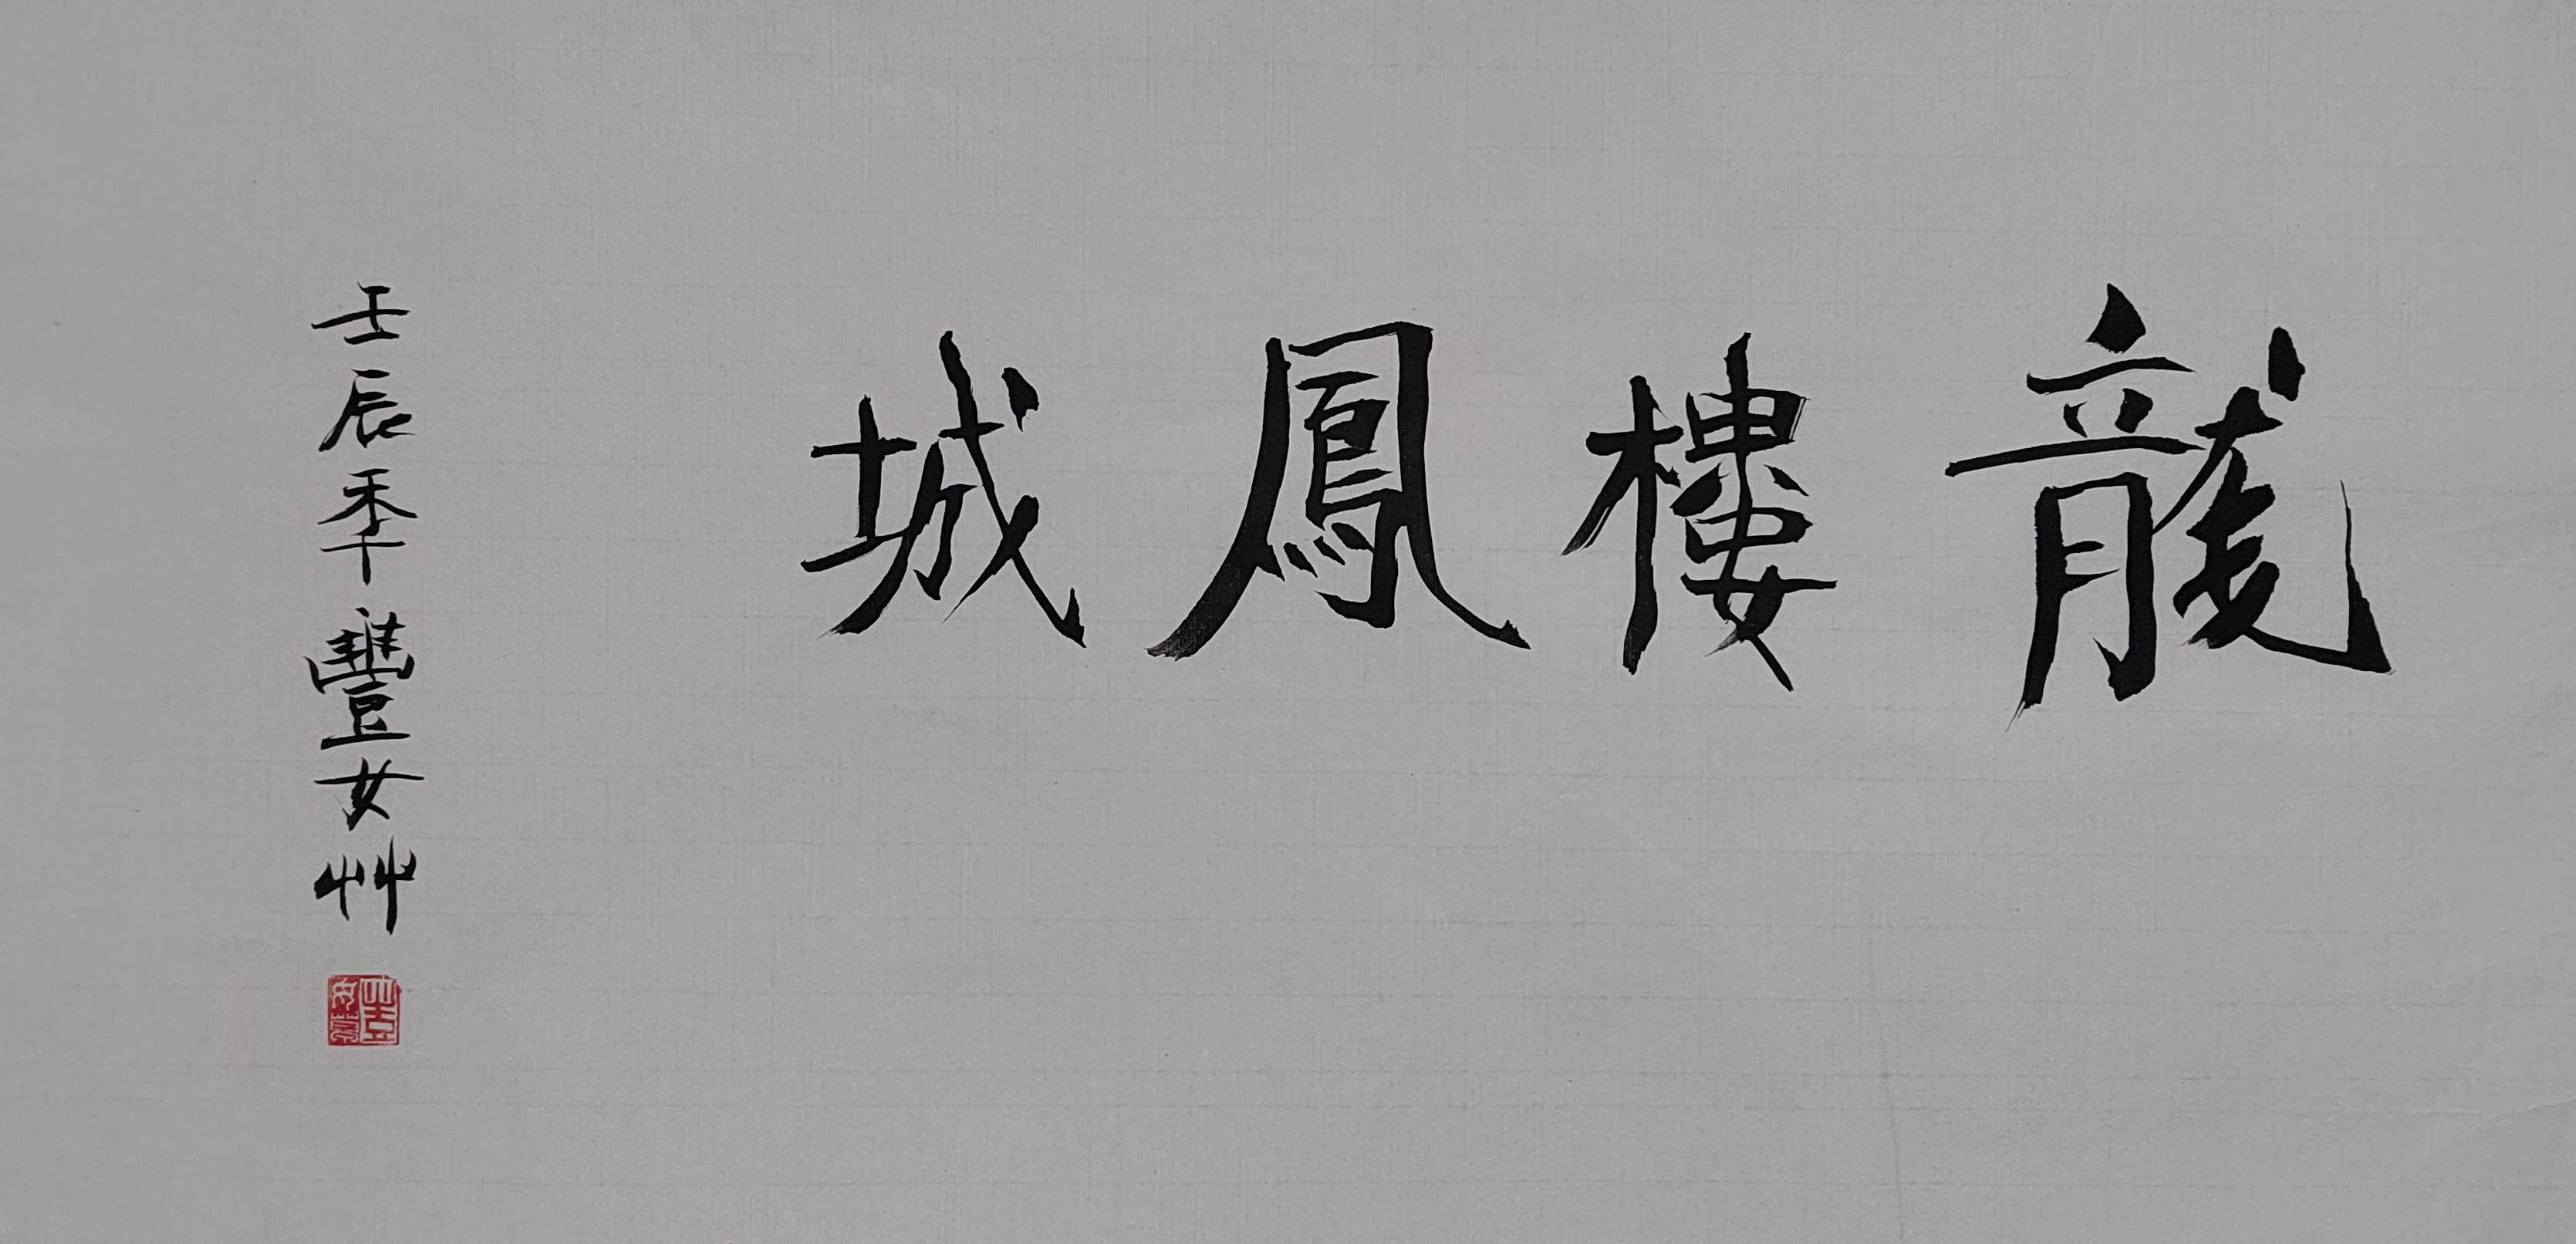 龍樓鳳城
壬辰秊豐女艸